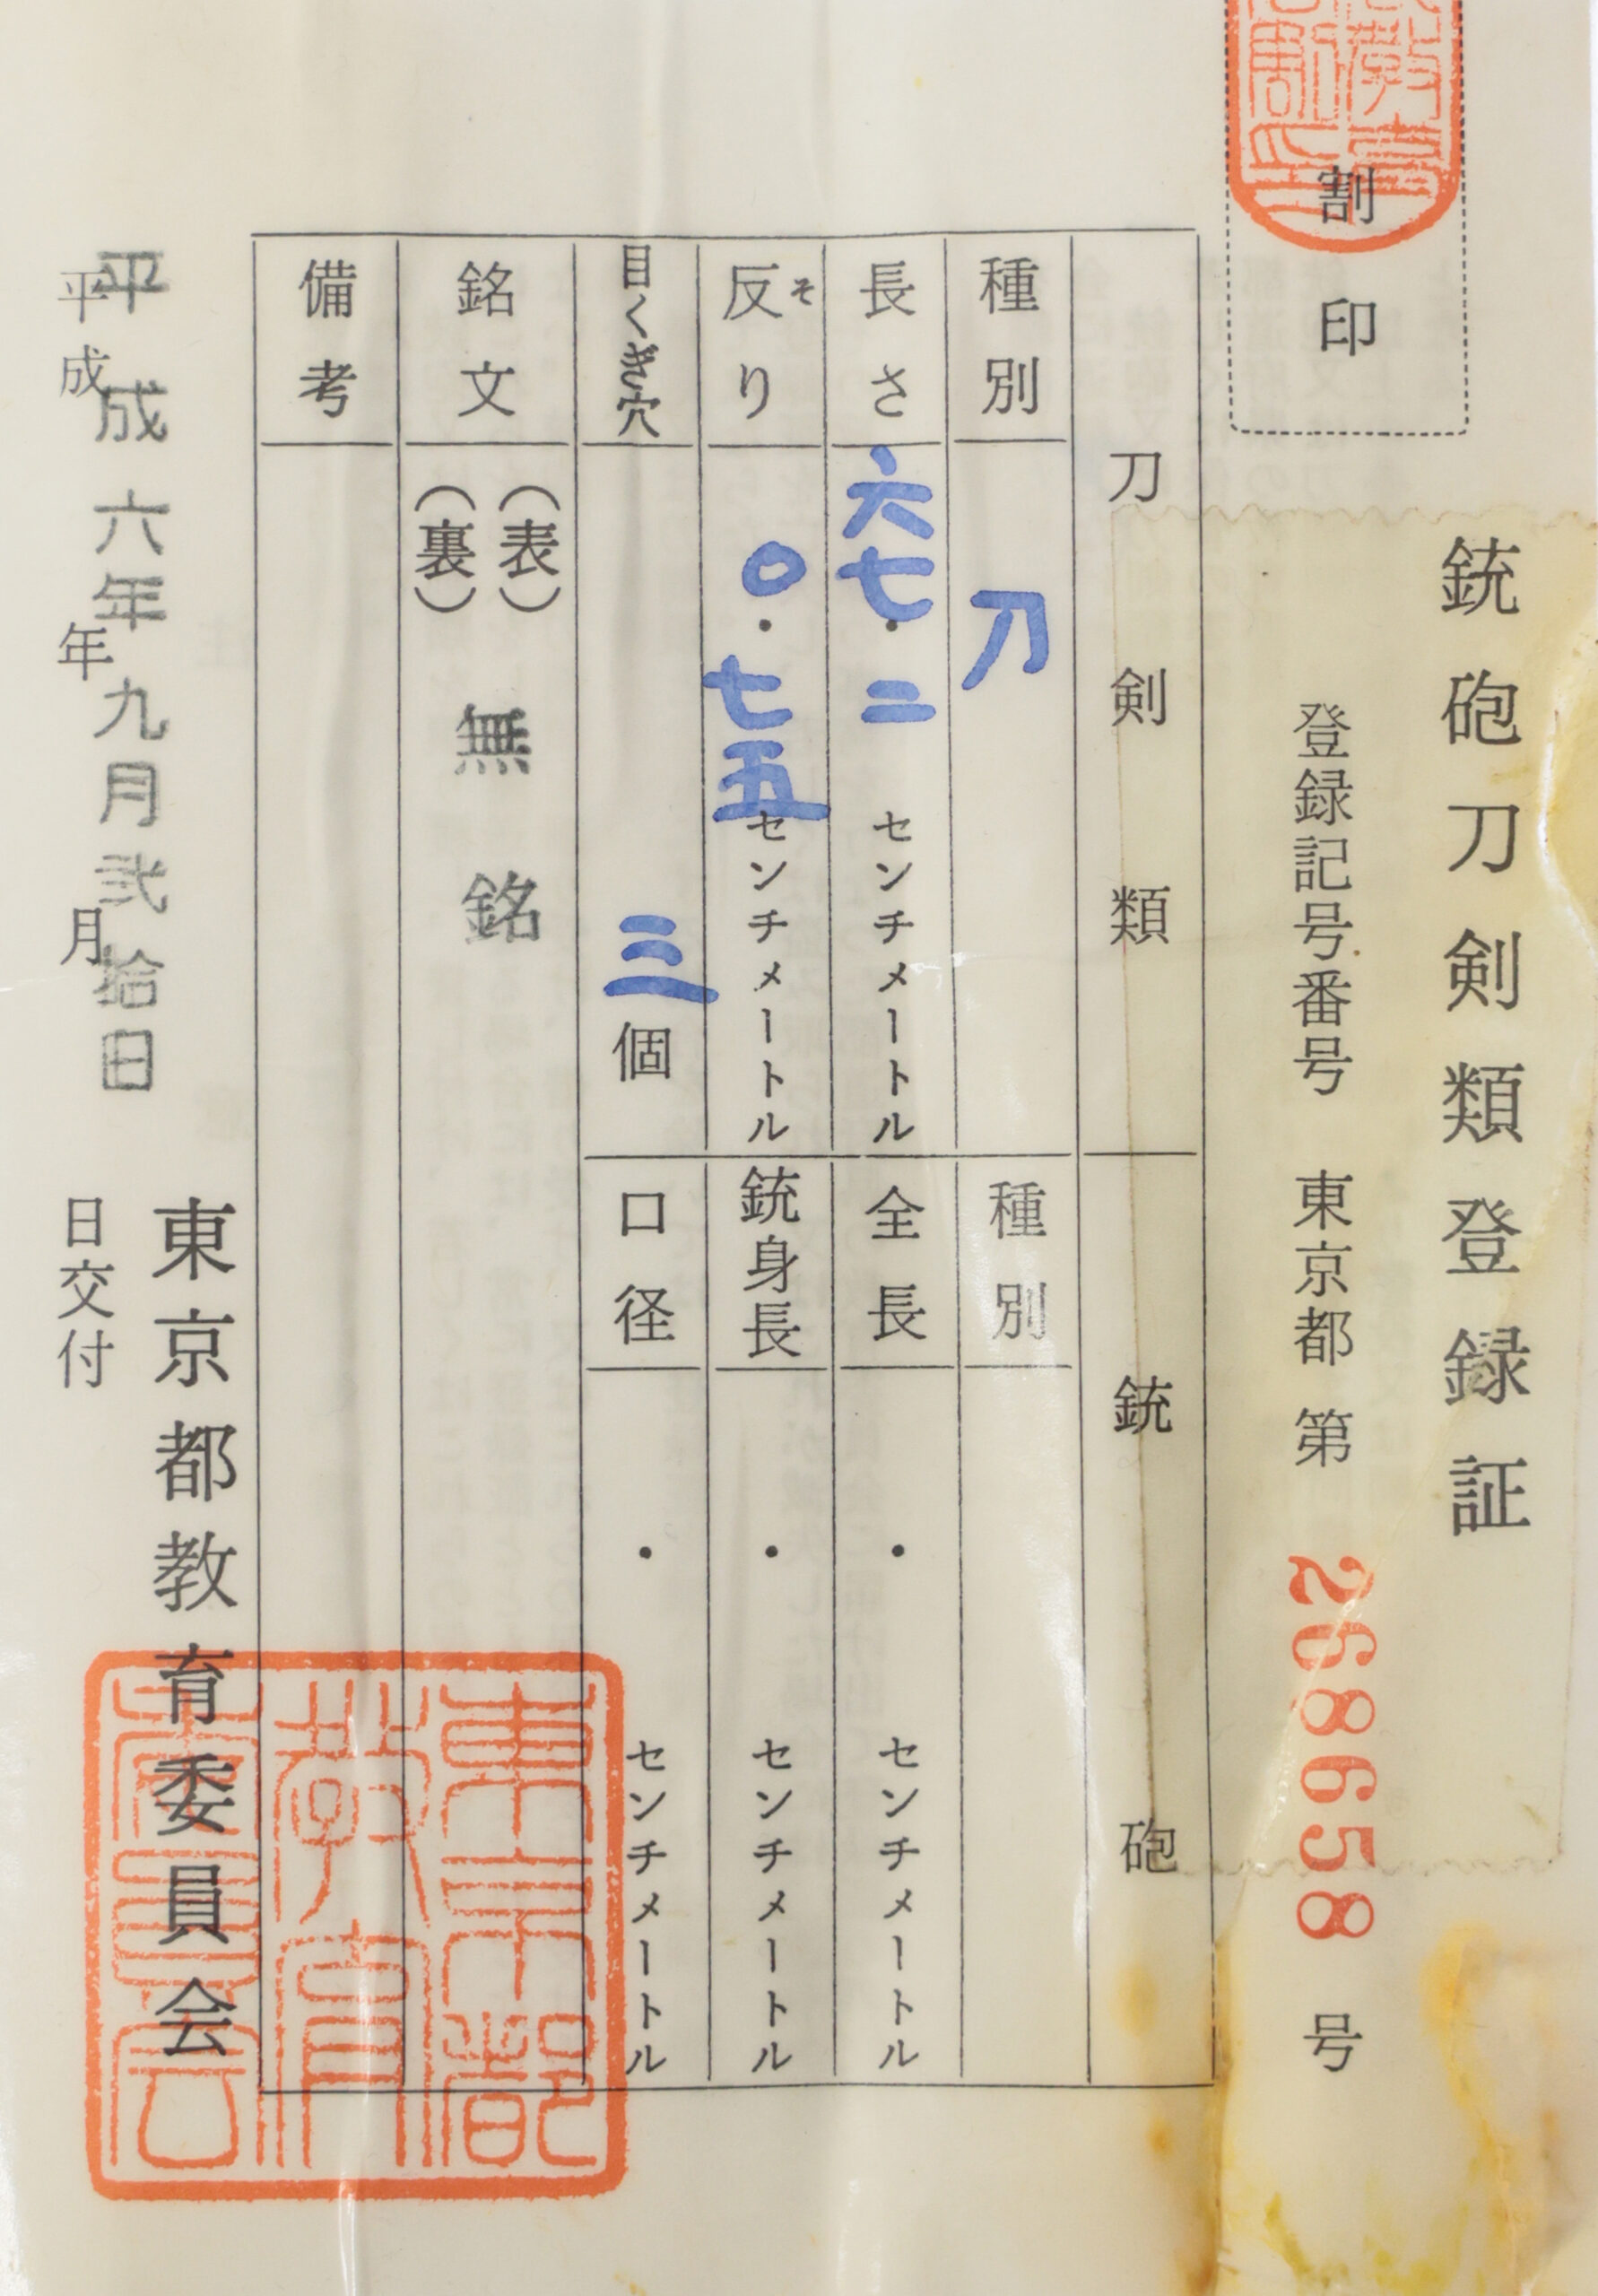 割印
銃砲刀剣類登録証
登録記号番号 東京都 第 268658 号
刀剣類
種別 刀
長さ 六七・二 センチメートル
反り そ 〇・七五 センチメートル
目くぎ穴 三個
銃砲
種別
全長 ・ センチメートル
銃身長 ・ センチメートル
口径 ・ センチメートル
銘文 (表) (裏) 無銘
備考
東京都教育委員会
平成六年九月弐拾日
平成 年 月 日交付
東京都教育委員会